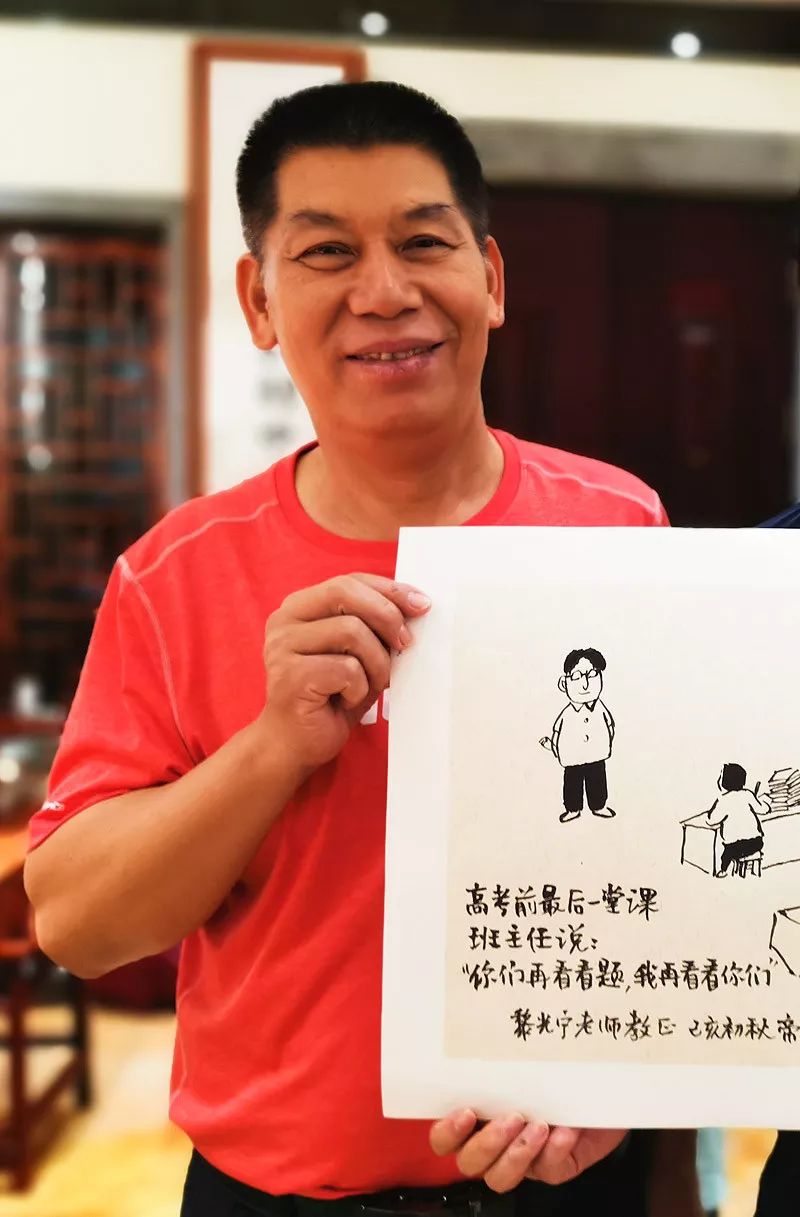 高考前最后一堂课
班主任说：
“你们再看看题，我再看看你们”
黎光宁老师教正 己亥初秋